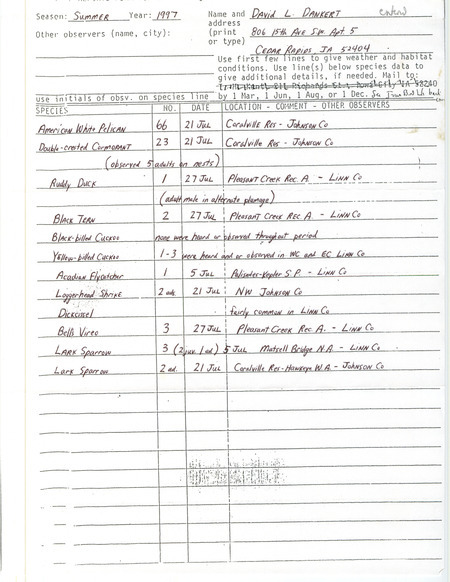 Season: Summer Year: 1997 Name and David L. Dankert
address
Other observers (name, city): (print 806 15th Ave SW Apt. 5
or type)
Cedar Rapids, IA 52404
Use first few lines to give weather and habitat
conditions. Use line(s) below species data to
give additional details, if needed. Mail to:
use initials of obsv. on species line by 1 Mar, 1 Jun, 1 Aug, or 1 Dec.
SPECIES NO. DATE LOCATION - COMMENT - OTHER OBSERVERS
American White Pelican 66 21 Jul Coralville Res - Johnson Co
Double-crested Cormorant 23 21 Jul Coralville Res - Johnson Co
(observed 5 adults on nests)
Ruddy Duck 1 27 Jul Pleasant Creek Rec. A. - Linn Co
(adult male in alternate plumage)
Black Tern 2 27 Jul Pleasant Creek Rec A. - Linn Co
Black-billed Cuckoo none were heard or observed throughout period
Yellow-billed Cuckoo 1-3 were heard and/or observed in WC and EC Linn Co
Acadian Flycatcher 1 5 Jul Palisades-Kepler S.P. - Linn Co
Loggerhead Shrike 2 ad. 21 Jul NW Johnson Co
Dickcissel fairly common in Linn Co
Bells Vireo 3 27 Jul Pleasant Creek Rec A. - Linn Co
Lark Sparrow 3 (2 juv. 1 ad.) 5 Jul Matsell Bridge N.A. - Linn Co
Lark Sparrow 2 ad. 21 Jul Coralville Res - Hawkeye W.A. - Johnson Co